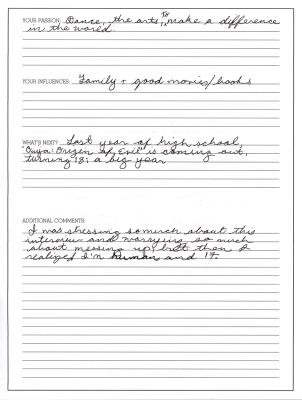 YOUR PASSION: Dance, the arts, to make a difference
in the world.
YOUR INFLUENCES: Family + good movies/books
WHAT'S NEXT? Last year of high school,
"Ouija: Origin of Evil" is coming out,
turning 18; a big year
ADDITIONAL COMMENTS:
I was stressing so much about this
interview and worrying so much
about messing up, but then I
realized I'm human and 17.